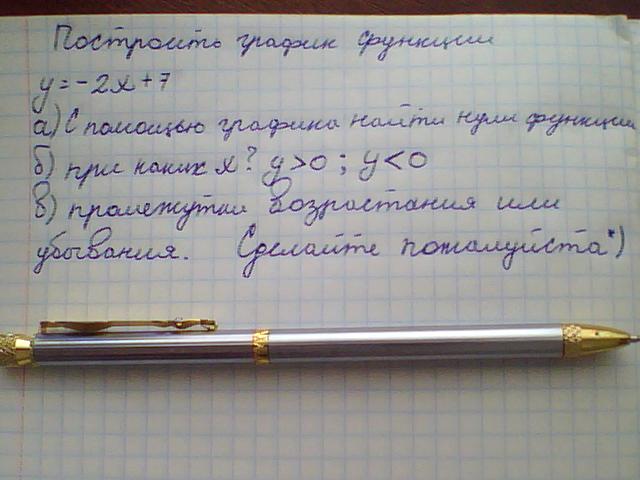 Построить график функции
y=-2x+7
а) С помощью графика найти нули функции
б) при каких x? y>0 ; y<0
в) промежутки возрастания или
убывания. Сделайте пожалуйста*)